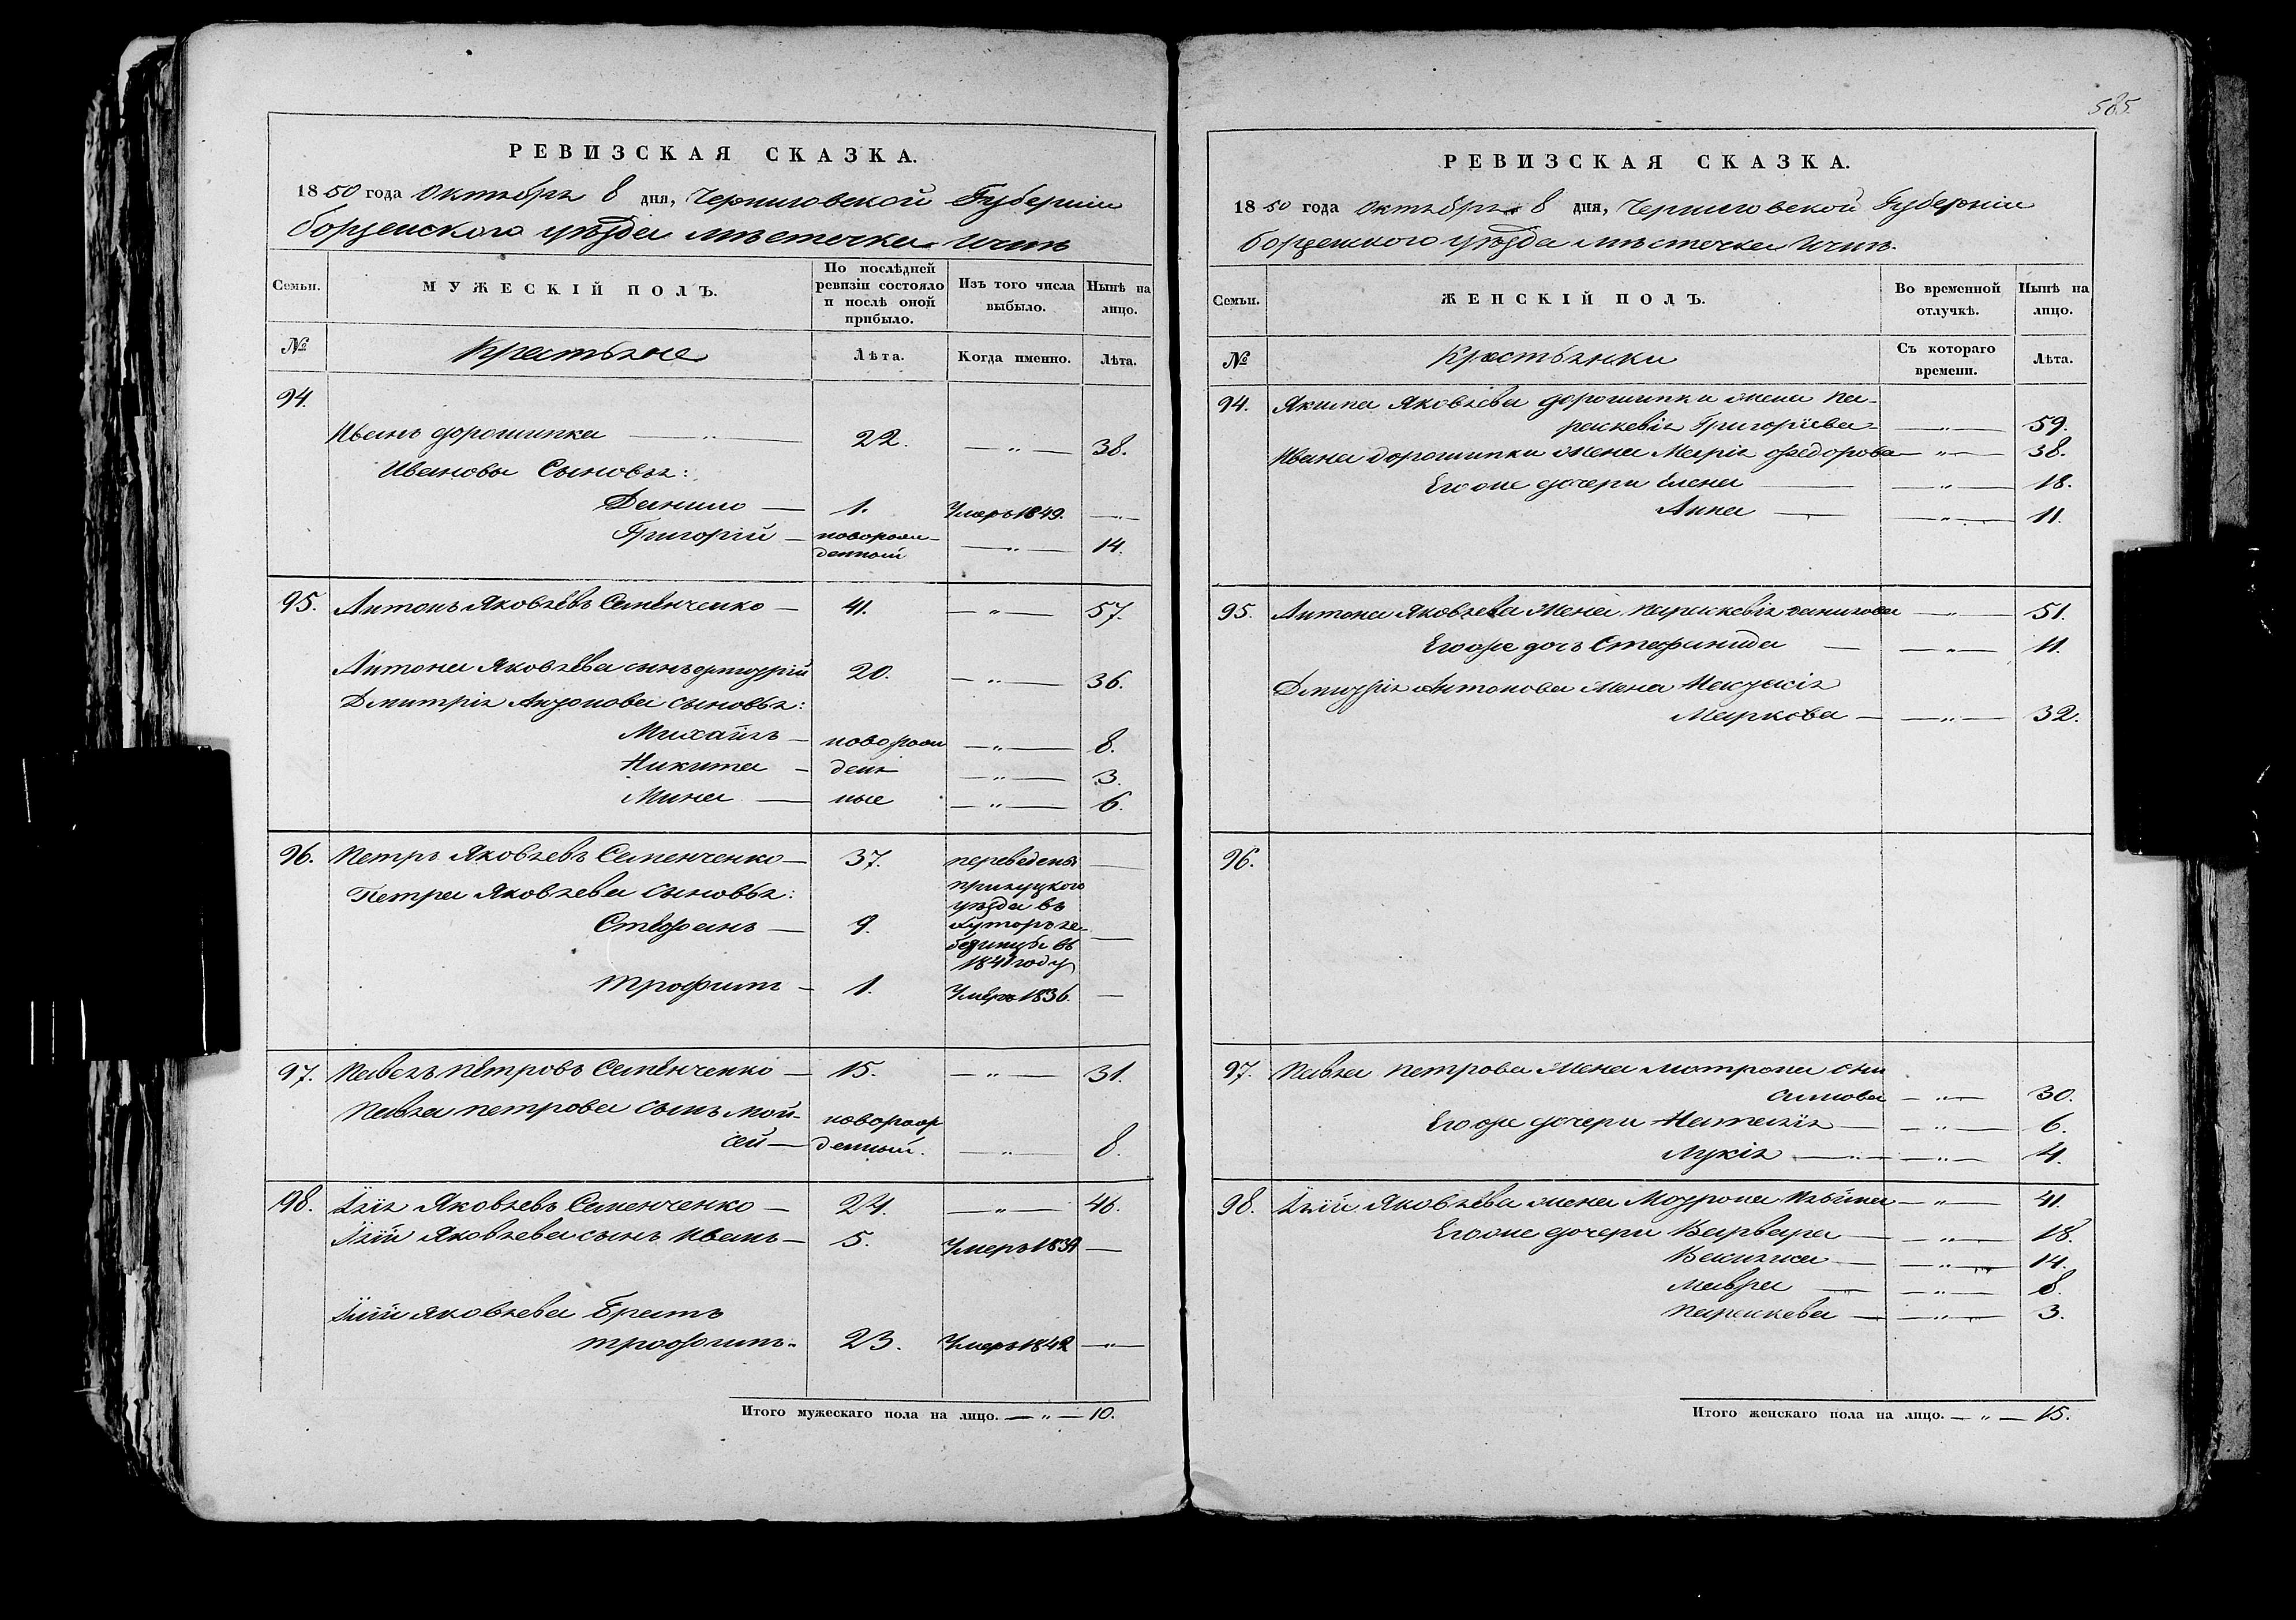 585.
РЕВИЗСКАЯ СКАЗКА.
1850 года Октября 8 дня, Черниговской Губернии
борзенского уѣзда мѣстечка Ични
Семьи.
МУЖЕСКІЙ ПОЛЪ.
По послѣдней ревизіи состояло и послѣ оной прибыло.
Изъ того числа выбыло.
Нынѣ на лицо.
№
Крестьяне
Лѣта.
Когда именно.
Лѣта.
94.
Иванъ дорошипка — 22. — " — 38.
Ивановы Сыновья:
Данило — 1. Умеръ 1849. —
Григорій — новорожденный — " — 14.
95. Антонъ Яковлевъ Семенченко — 41. — " — 57.
Антона Яковлева сынъ дмитрій 20. — " — 36.
Дмитрія Антонова сыновья:
Михайлъ — новорож — " — 8.
Никита — ден — " — 3.
Мина — ные — " — 6.
96. Петръ Яковлевъ Семенченко — 37. переведены —
Петра Яковлева сыновья: прилуцкого
уѣзда въ
Стефанъ — 9. хуторъ ле-
бединцы въ —
1841 году
Трофимъ — 1. Умеръ 1836. —
97. Павелъ петровъ Семенченко — 15. — " — 31.
Павла петрова сынъ Мой-
сей — новорожденный. — " — 8.
98. Илія Яковлевъ Семенченко — 24. — " — 46.
Иліи Яковлева сынъ Иванъ — 5. Умеръ 1834 —
Иліи яковлева братъ
трофимъ. 23. Умеръ 1842 — " —
Итого мужескаго пола на лицо. — " — 10.
РЕВИЗСКАЯ СКАЗКА.
1850 года Октября 8 дня, Черниговской Губерніи
борзенского уѣзда мѣстечка Ични.
Семьи.
ЖЕНСКІЙ ПОЛЪ.
Во временной отлучкѣ.
Нынѣ на лицо.
№
Крестьянки
Съ котораго времени.
Лѣта.
94. Якима Яковлева дорошипки жена па-
раскевія Григоріева — " — 59.
Ивана дорошипки жена Марія федорова — " — 38.
Его же дочери Елена — " — 18.
Анна — " — 11.
95. Антона Яковлева жена параскевія данилова — " — 51.
Его же дочь Стефанида — " — 11.
Дмитрія Антонова жена
Маркова — " — 32.
96.
97. Павла петрова жена мотрона
— " — 30.
Его же дочери Наталія — " — 6.
Лукія — " — 4.
98. Иліи Яковлева жена Мотрона Ильина — " — 41.
Его же дочери Варвара — " — 18.
14.
Мавра — " — 8.
Параскева — " — 3.
Итого женскаго пола на лицо. — " — 15.